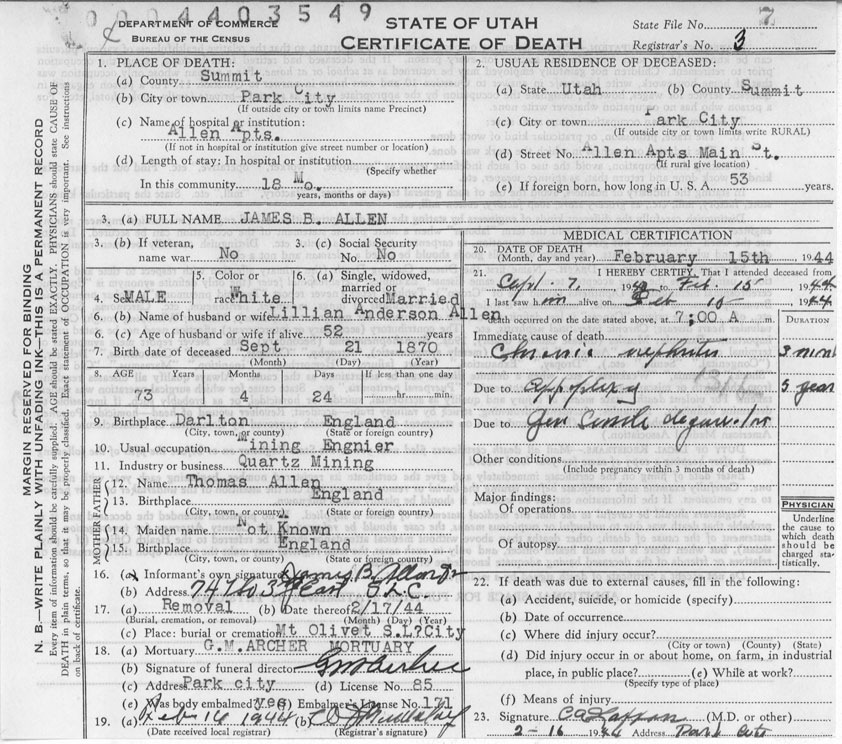 0004403549
DEPARTMENT OF COMMERCE
BUREAU OF THE CENSUS
STATE OF UTAH
CERTIFICATE OF DEATH
State File No. 7
Registrar's No. 3
MARGIN RESERVED FOR BINDING
N. B.—WRITE PLAINLY WITH UNFADING INK—THIS IS A PERMANENT RECORD
Every item of information should be carefully supplied. AGE should be stated EXACTLY. PHYSICIANS should state CAUSE OF
DEATH in plain terms, so that it may be properly classified. Exact statement of OCCUPATION is very important. See instructions
on back of certificate.
1. PLACE OF DEATH:
(a) County Summit
(b) City or town Park City
(If outside city or town limits name Precinct)
(c) Name of hospital or institution:
Allen Apts.
(If not in hospital or institution give street number or location)
(d) Length of stay: In hospital or institution
(Specify whether
In this community 18 Mo.
years, months or days)
2. USUAL RESIDENCE OF DECEASED:
(a) State Utah (b) County Summit
(c) City or town Park City
(If outside city or town limits write RURAL)
(d) Street No. Allen Apts Main St.
(If rural give location)
(e) If foreign born, how long in U. S. A. 53 years.
3. (a) FULL NAME JAMES B. ALLEN
3. (b) If veteran, name war No
3. (c) Social Security No. No
4. Sex MALE
5. Color or race White
6. (a) Single, widowed, married or divorced Married
6. (b) Name of husband or wife Lillian Anderson Allen
6. (c) Age of husband or wife if alive 52 years
7. Birth date of deceased Sept 21 1870
(Month) (Day) (Year)
8. AGE Years Months Days If less than one day
73 4 24 hr. min.
9. Birthplace Darlton England
(City, town, or county) (State or foreign country)
10. Usual occupation Mining Engnier
11. Industry or business Quartz Mining
FATHER
12. Name Thomas Allen
13. Birthplace England
(City, town, or county) (State or foreign country)
MOTHER
14. Maiden name Not Known
15. Birthplace England
(City, town, or county) (State or foreign country)
16. (a) Informant's own signature James B. Allen Jr
(b) Address S.L.C.
17. (a) Removal (b) Date thereof 2/17/44
(Burial, cremation, or removal) (Month) (Day) (Year)
(c) Place: burial or cremation Mt Olivet S.L?City
18. (a) Mortuary G.M.ARCHER MORTUARY
(b) Signature of funeral director GM Archer
(c) Address Park city (d) License No. 85
(e) Was body embalmed yes (f) Embalmer's License No. 171
19. (a) Feb 16 1944 (b)
(Date received local registrar) (Registrar's signature)
MEDICAL CERTIFICATION
20. DATE OF DEATH
(Month, day and year) February 15th 1944
21. I HEREBY CERTIFY, That I attended deceased from
Sept. 7, 194 to Feb. 15 1944
I last saw him alive on Feb 15 1944
death occurred on the date stated above, at 7;00 A m.
DURATION
Immediate cause of death
Chronic nephritis 3 mon
Due to appoplexy 5 year
Due to Gen
Other conditions
(Include pregnancy within 3 months of death)
Major findings:
Of operations
Of autopsy
PHYSICIAN
Underline
the cause to
which death
should be
charged sta-
tistically.
22. If death was due to external causes, fill in the following:
(a) Accident, suicide, or homicide (specify)
(b) Date of occurrence
(c) Where did injury occur?
(City or town) (County) (State)
(d) Did injury occur in or about home, on farm, in industrial
place, in public place? (e) While at work?
(Specify type of place)
(f) Means of injury
23. Signature (M.D. or other)
2-16 1944 Address Park City